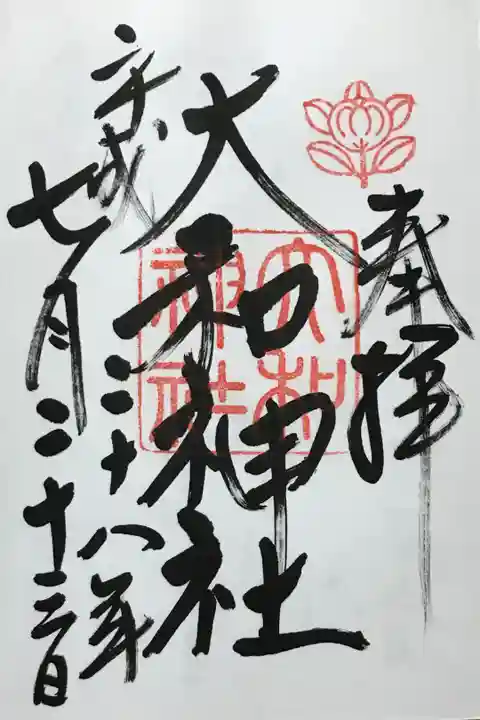 奉拝
大和神社
平成二十八年
七月二十三日
大和神社